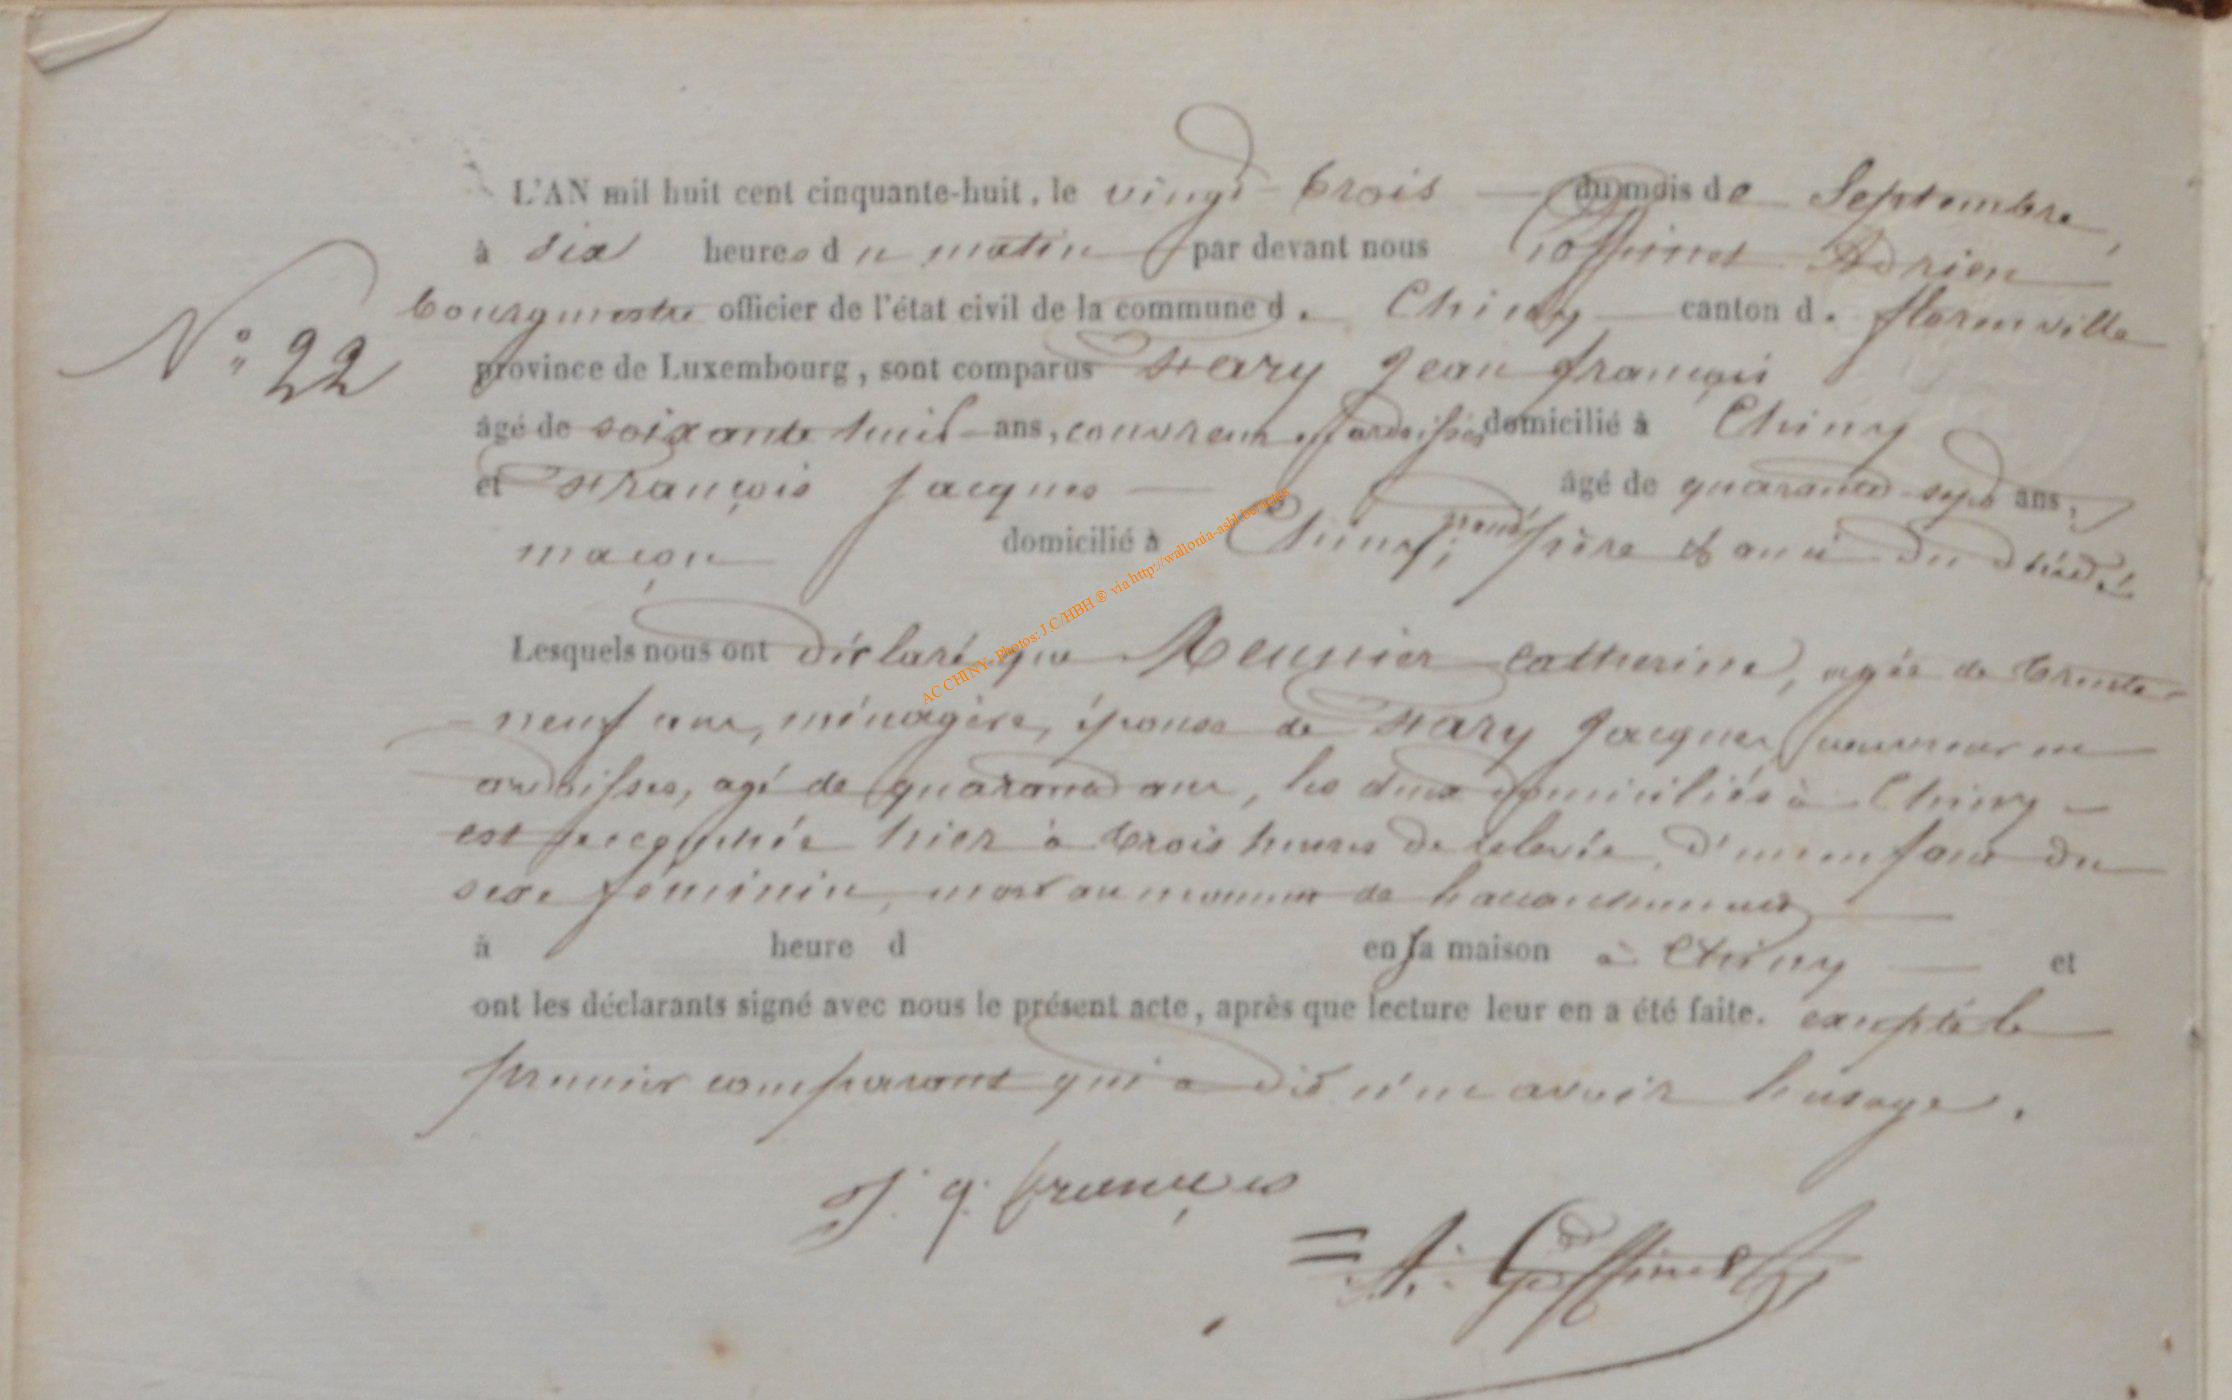 L'AN mil huit cent cinquante-huit, le vingt-trois du mois de Septembre,
à dix heures du matin par devant nous Goffinet Adrien
bourgmestre officier de l'état civil de la commune d. Chiny canton d. florenville
N° 22
province de Luxembourg, sont comparus Hary Jean françois
âgé de soixante huit ans, couvreur en ardoisses domicilié à Chiny
et François Jacques âgé de quarante sept ans,
maçon domicilié à Chiny, père et ami du
AC CHINY- Photos: J.C/HBH ® via http://wallonia-asbl.be/actes
Lesquels nous ont déclaré que Meunier Catherine, agée de trente-
neuf ans, ménagère, épouse de Hary Jacques, couvreur en
ardoisses, agé de quarante ans, les deux domiciliés à Chiny
est accouchée hier à trois heures de relevée, d'un enfant du
sexe féminin, mort au moment de
à heure d en sa maison à Chiny et
ont les déclarants signé avec nous le présent acte, après que lecture leur en a été faite. excepté le
premier comparant qui a dit n'en avoir l'usage.
J. J. françois
= A. Goffinet